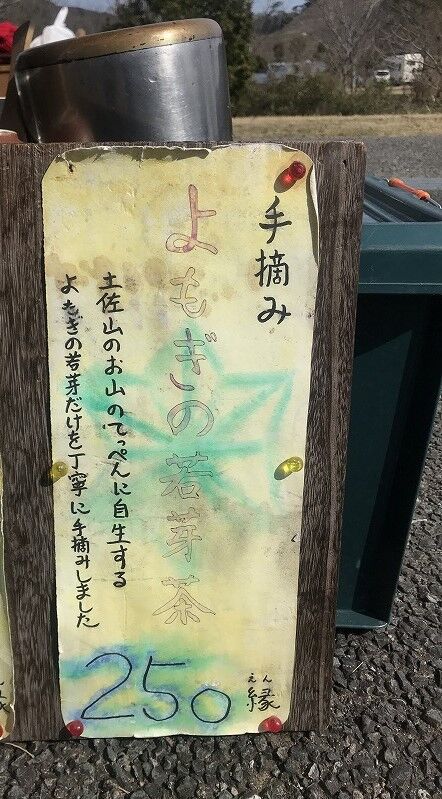 手摘み
よもぎの若芽茶
土佐山のお山のてっぺんに自生する
よもぎの若芽だけを丁寧に手摘みしました
250縁
えん